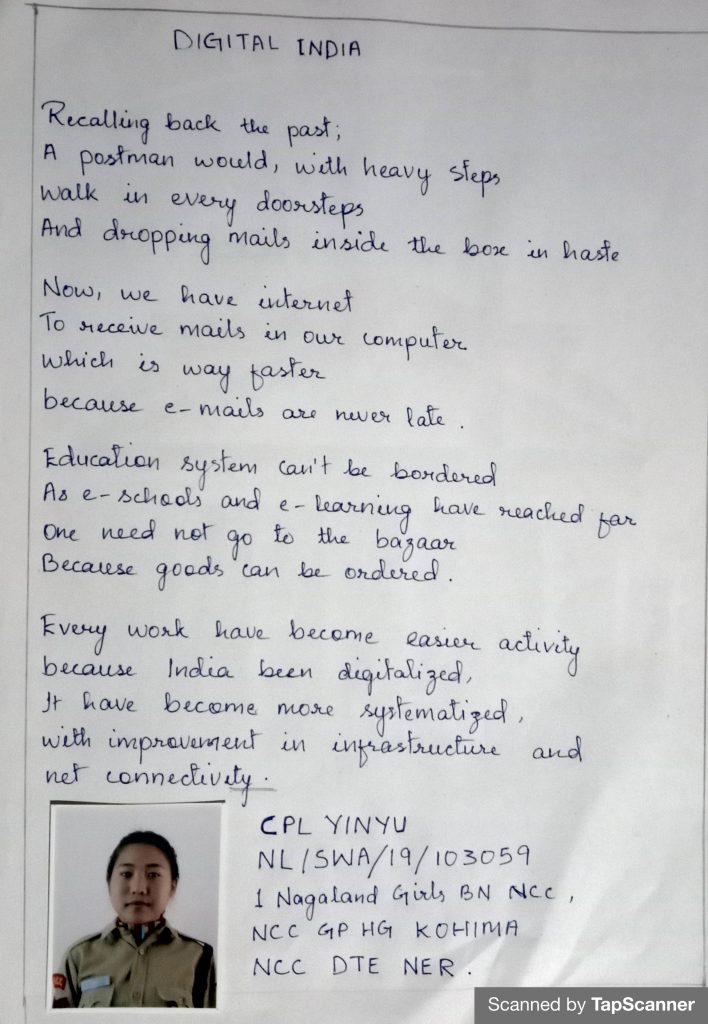 DIGITAL INDIA
Recalling back the past;
A postman would, with heavy steps
walk in every doorsteps
And dropping mails inside the box in haste
Now, we have internet
To receive mails in our computer
which is way faster
because e-mails are never late.
Education system can't be bordered
As e-schools and e-learning have reached far
One need not go to the bazaar
Because goods can be ordered.
Every work have become easier activity
because India been digitalized,
It have become more systematized,
with improvement in infrastructure and
net connectivity.
CPL YINYU
NL/SWA/19/103059
1 Nagaland Girls BN NCC,
NCC GP HG KOHIMA
NCC DTE NER.
Scanned by TapScanner